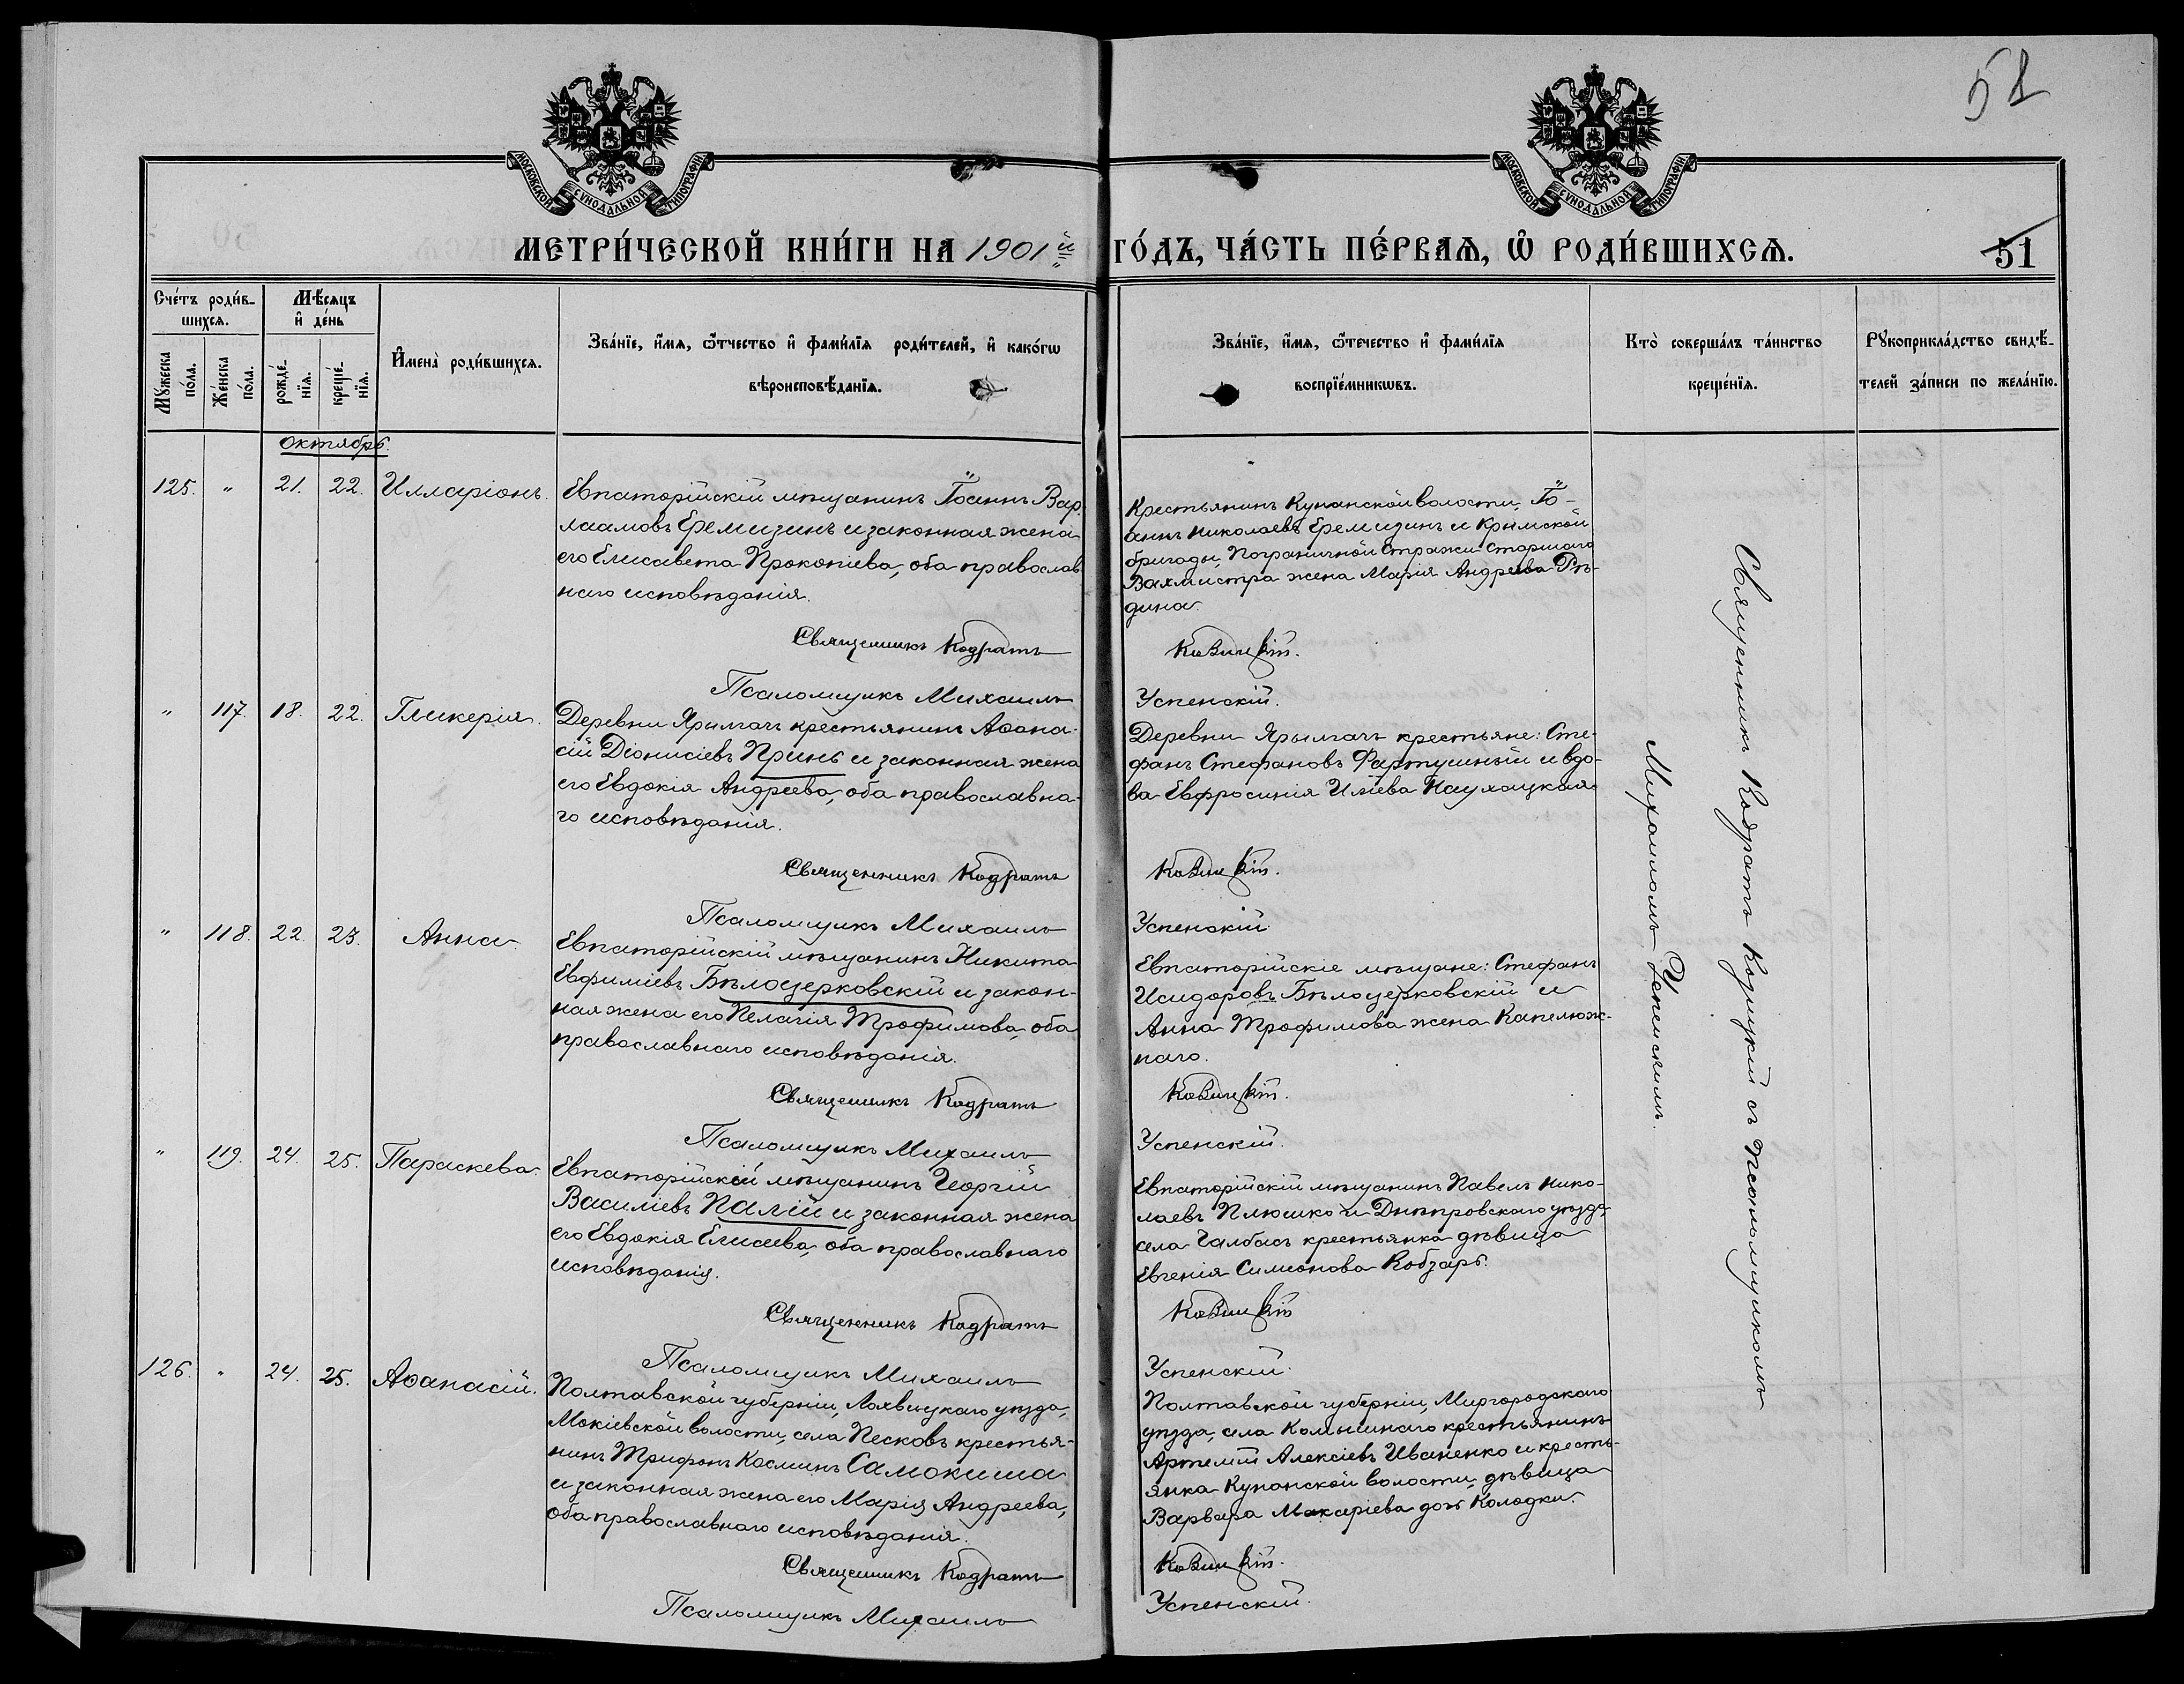 52
МОСКОВСКОЙ СѴНОДАЛЬНОЙ ТИПОГРАФІИ
МОСКОВСКОЙ СѴНОДАЛЬНОЙ ТИПОГРАФІИ
МЕТРИ́ЧЕСКОЙ КНИ́ГИ НА 1901й ГО́ДЪ, ЧА́СТЬ ПЕ́РВАѦ, Ѡ РОДИ́ВШИХСѦ.
51
Сче́тъ роди́в-
шихсѧ.
Мѣ́сѧцъ
и҆ де́нь
Мꙋ́жеска
по́ла.
Же́нска
по́ла.
рожде́-
нїѧ.
креще́-
нїѧ.
И҆мена̀ роди́вшихсѧ.
Зва́нїе, и҆́мѧ, ѻ҆́тчество и҆ фами́лїѧ роди́телей, и҆ како́гѡ
вѣроисповѣ́данїѧ.
Зва́нїе, и҆́мѧ, ѻ҆те́чество и҆ фами́лїѧ
воспрїе́мникѡвъ.
Кто̀ соверша́лъ та́инство
креще́нїѧ.
Рꙋкоприкла́дство свидѣ́-
телей за́писи по жела́нїю.
Октябрь.
125. " 21. 22. Илларіонъ.
Евпаторійскій мѣщанинъ Іоаннъ Вар-
лаамовъ Еремизинъ и законная жена
его Елисавета Прокопіева, оба православ
наго исповѣданія.
Священникъ Кодратъ
Псаломщикъ Михаилъ
Крестьянинъ Кунанской волости, Іо-
аннъ Николаевъ Еремизинъ и Крымской
бригады, Пограничной Стражи старшаго
Вахмистра жена Марія Андреева Рѣ-
дина.
Козицкій.
Успенскій.
" 117. 18. 22. Гликерія.
Деревни Ярылгачъ крестьянинъ Аѳана-
сій Діонисіевъ Принь и законная жена
его Евдокія Андреева, оба православна-
го исповѣданія.
Священникъ Кодратъ
Псаломщикъ Михаилъ
Деревни Ярылгачъ крестьяне: Сте-
фанъ Стефановъ Фартушный и вдо-
ва Евфросинія Иліева
Козицкій.
Успенскій.
" 118. 22. 23. Анна.
Евпаторійскій мѣщанинъ Никита
Евфиміевъ Бѣлоцерковскій и закон-
ная жена его Пелагія Трофимова, оба
православнаго исповѣданія.
Священникъ Кодратъ
Псаломщикъ Михаилъ
Евпаторійскіе мѣщане: Стефанъ
Исидоровъ Бѣлоцерковскій и
Анна Трофимова жена Капелюж-
наго.
Козицкій.
Успенскій.
" 119. 24. 25. Параскева.
Евпаторійскій мѣщанинъ Георгій
Василіевъ Палій и законная жена
его Евдокія Елисеева, оба православнаго
исповѣданія.
Священникъ Кодратъ
Псаломщикъ Михаилъ
Евпаторійскій мѣщанинъ Павелъ Нико-
лаевъ Плюшко и Днѣпровскаго уѣзда,
села Чалбасъ крестьянка дѣвица
Евгенія Симеонова Кобзарь.
Козицкій
Успенскій.
126. " 24. 25. Аѳанасій.
Полтавской губерніи, Лохвицкаго уѣзда,
Мокіевской волости, села Песковъ крестья-
нинъ Трифонъ Косминъ Самокиша
и законная жена его Марія Андреева,
оба православнаго исповѣданія.
Священникъ Кодратъ
Псаломщикъ Михаилъ
Полтавской губерніи, Миргородскаго
уѣзда, села Комышнаго крестьянинъ
Артемій Алексіевъ Иваненко и кресть-
янка Кунанской волости, дѣвица
Варвара Макаріева дочь Колодки.
Козицкій.
Успенскій.
Священникъ Кодратъ Козицкій съ псаломщикомъ
Михаиломъ Успенскимъ.